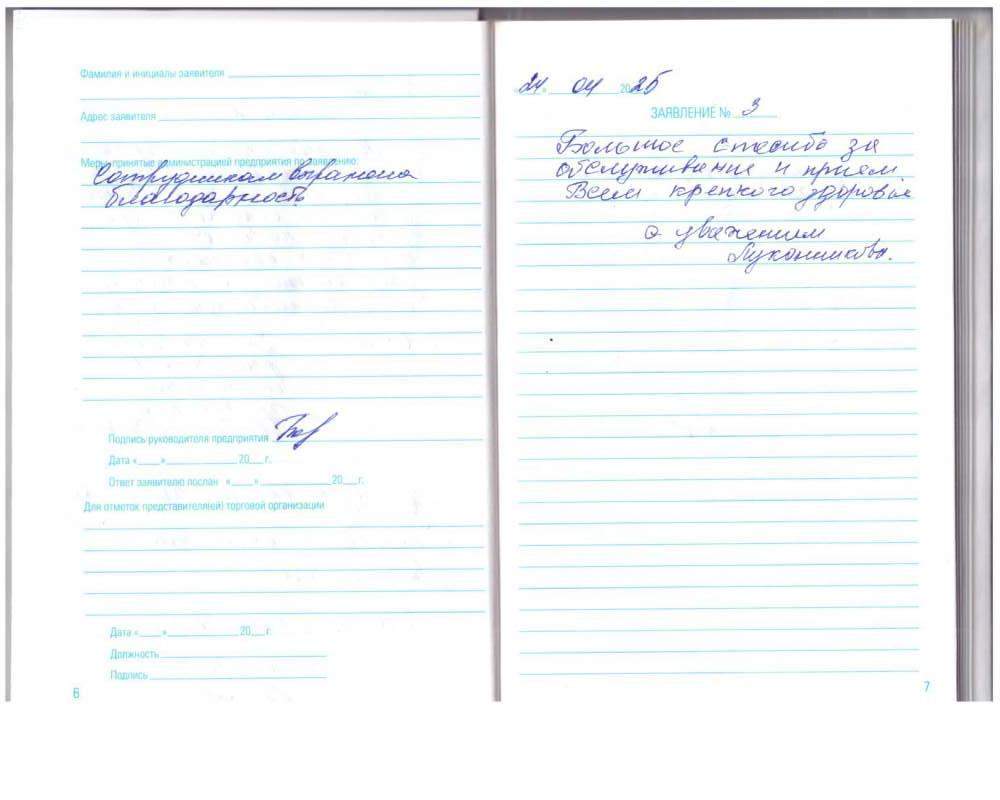 Фамилия и инициалы заявителя
Адрес заявителя
Меры, принятые администрацией предприятия по заявлению:
Сотрудникам выражена
благодарность
Подпись руководителя предприятия
Дата «____»____________ 20___г.
Ответ заявителю послан «____»____________ 20___г.
Для отметок представителя(ей) торговой организации
Дата «____»____________ 20___г.
Должность
Подпись
6
24 04 2025
ЗАЯВЛЕНИЕ № 3
Большое спасибо за
обслуживание и прием.
Всем крепкого здоровья
с уважением
7